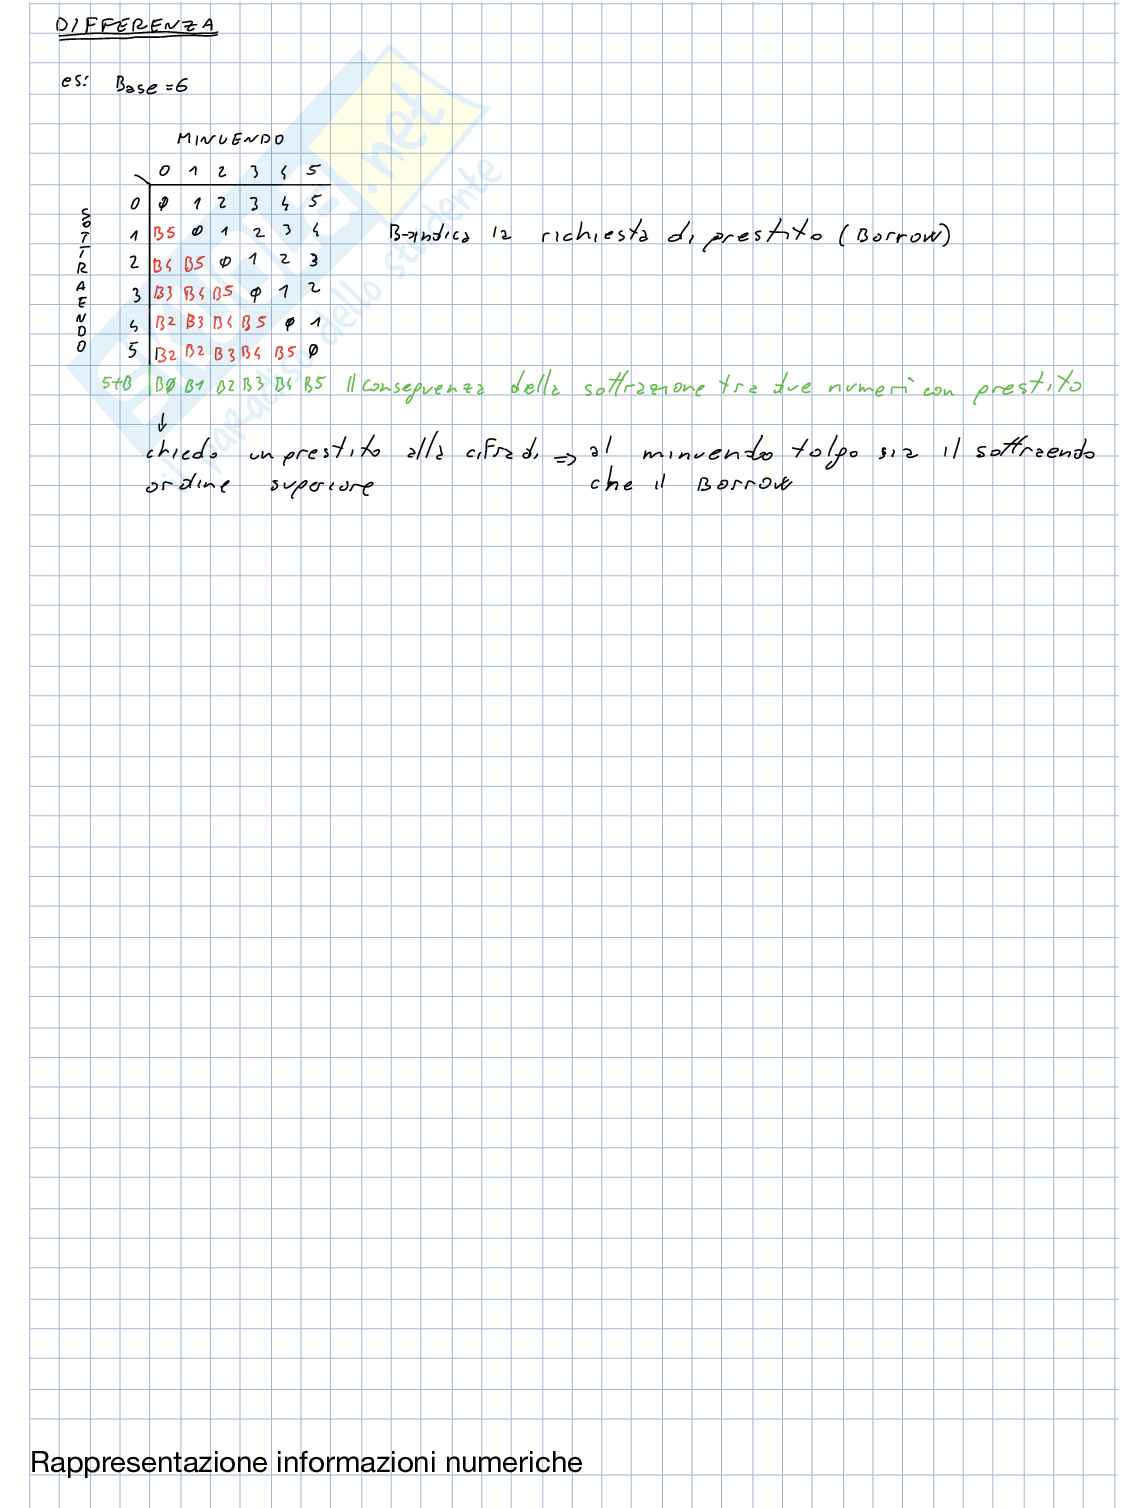 DIFFERENZA
es: Base = 6
MINUENDO
0 1 2 3 4 5
SOTTRAENDO
0 0 1 2 3 4 5
1 B5 0 1 2 3 4 B→indica la richiesta di prestito (Borrow)
2 B4 B5 0 1 2 3
3 B3 B4 B5 0 1 2
4 B2 B3 B4 B5 0 1
5 B2 B2 B3 B4 B5 0
5+B B0 B1 B2 B3 B4 B5 Il conseguenza della sottrazione tra due numeri con prestito
↓
chiedo un prestito alla cifra di => al minuendo tolgo sia il sottraendo
ordine superiore che il Borrow
Rappresentazione informazioni numeriche